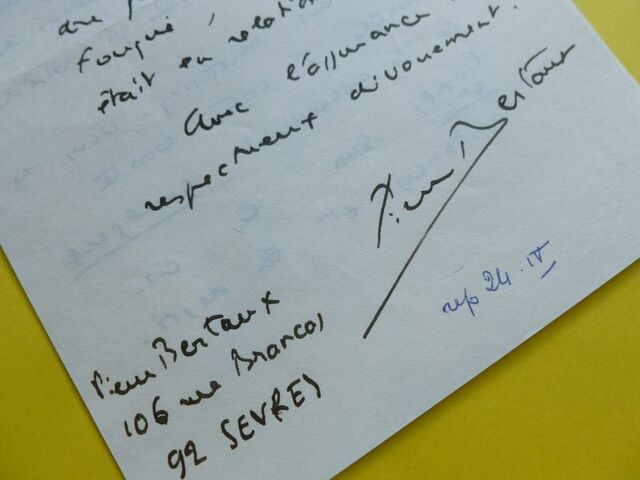 Fouqué,
était en relation
Avec l'assurance
respectueux dévouement.
Pierre Bertaux
rép 24.IV
Pierre Bertaux
106 rue Brancas
92 SEVRES